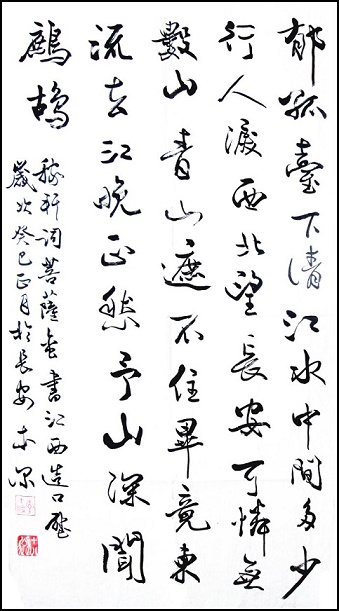 郁孤臺下清江水中間多少
行人淚西北望長安可憐無
數山青山遮不住畢竟東
流去江晚正愁予山深聞
鷓鴣
稼軒詞菩薩蠻書江西造口壁
歲次癸巳正月於長安